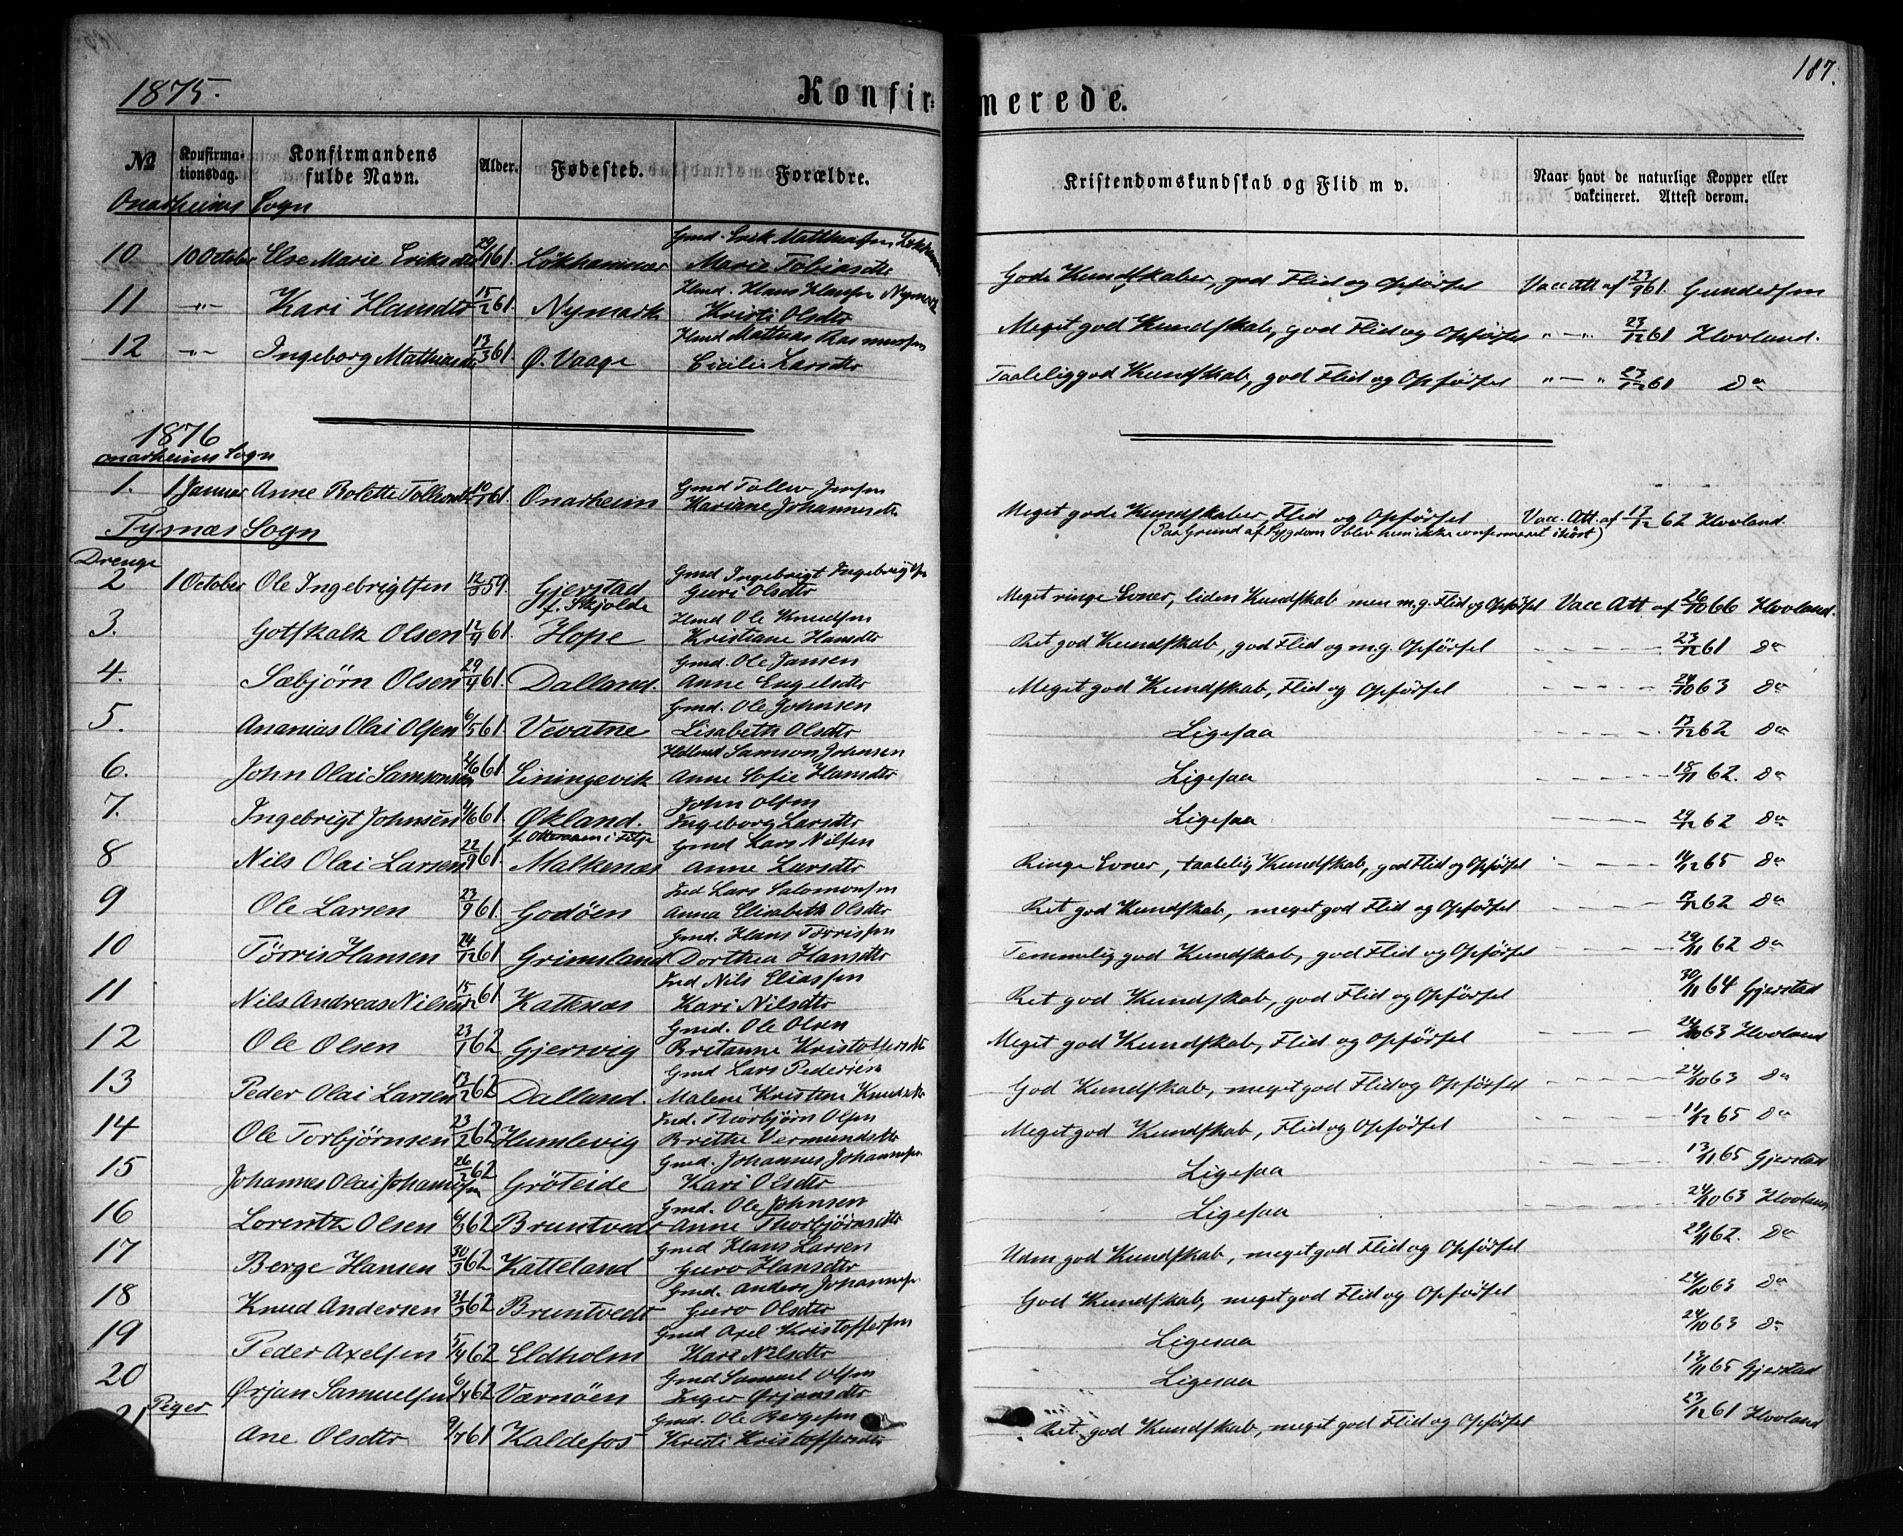 1875. Konfirmerede. 187.
№ Konfirmationsdag. Konfirmandens fulde Navn. Alder. Fødested. Forældre. Kristendomskundskab og Flid m v. Naar havt de naturlige Kopper eller vakcineret. Attest derom.
Onarheims Sogn
10 10 October Else Marie Eriksdtr 29/1 61. Løkhammer Gmd. Erik Matthiasen Løkhammer Marie Tobiasdtr Gode Kundskaber, god Flid og Opførsel Vacc Att af 23/9 61. Gundersen
11 -"- Kari Hansdtr 15/2 61. Nymark Hmd. Hans Hansen Nymark Kristi Olsdtr Meget god Kundskab, god Flid og Opførsel " — " 23/12 61 Hovland.
12 -"- Ingeborg Mathiasdtr 13/3 61. Ø. Vaage Hmd Mathias Rasmussen Cicilie Larsdtr Taalelig god Kundskab, god Flid og Opførsel " — " 23/12 61 Do
1876
Onarheims Sogn
1. 1 Januar Anne Bolette Tollevsdtr 10/1 61. Onarheim Gmd Tollev Jensen Kariane Johannesdtr Meget gode Kundskaber, Flid og Opførsel Vacc. Att. af 17/12 62 Hovland.
(Paa Grund af Sygdom blev hun ikke confirmeret i høst)
Tysnæs Sogn
Drenge
2 1 October Ole Ingebrigtsen 12/3 59. Gjerstad f. Skjolde Gmd Ingebrigt Ingebrigtsen Guri Olsdtr Meget ringe Evner, liden Kundskab men m.g. Flid og Opførsel Vacc Att af 26/10 66 Hovland.
3. Gotskalk Olsen 12/4 61. Hope Hmd Ole Knudsen Kristiane Hansdtr Ret god Kundskab, god Flid og m.g. Opførsel 23/12 61 Do
4. Sæbjørn Olsen 29/4 61. Dalland. Gmd. Ole Jansen Anne Engelsdtr Meget god Kundskab, Flid og Opførsel 24/10 63 Do
5. Ananias Olai Olsen 6/5 61. Vevatne Gmd. Ole Johnsen Lisabeth Olsdtr Ligesaa 17/12 62 Do
6. John Olai Samsonsen 2/6 61. Liningevik Samson Johnsen Anne Sofie Hansdtr Ligesaa 18/11 62. Do
7. Ingebrigt Johnsen 4/6 61. Økland. John Olsen Ingeborg Larsdtr Ligesaa 62 Do
8 Nils Olai Larsen 22/9 61. Malkenæs Gmd Lars Nilsen Anne Larsdtr Ringe Evner, taalelig Kundskab, god Flid og Opførsel 14/12 65 Do
9 Ole Larsen 23/9 61. Godøen Ind Lars Salomonsen Anna Elisabeth Olsdtr Ret god Kundskab, meget god Flid og Opførsel 62 Do
10 Tørris Hansen 24/12 61 Grimsland Gmd. Hans Tørrissen Dorthea Hansdtr Temmelig god Kundskab, god Flid og Opførsel 29/11 62 Do
11 Nils Andreas Nilsen 15/12 61 Katnæs Ind Nils Eliassen Kari Nilsdtr Ret god Kundskab, god Flid og Opførsel 30/11 64 Gjerstad
12 Ole Olsen 23/1 62 Gjersvig Gmd. Ole Olsen Britanne Kristoffersdtr Meget god Kundskab, Flid og Opførsel 24/10 63 Hovland
13 Peder Olai Larsen 13/2 62 Dalland. Gmd Lars Pedersen Malene Kristine Knudsdtr God Kundskab, meget god Flid og Opførsel 24/10 63 Do
14 Ole Torbjørnsen 23/2 62 Humlevig Ind. Thorbjørn Olsen Britha Vermundsdtr Meget god Kundskab, Flid og Opførsel 11/12 65 Do
15 Johannes Olai Johannesen 26/2 62 Grøteide Gmd. Johannes Johannesen Kari Olsdtr Ligesaa 13/11 65 Gjerstad
16 Lorentz Olsen 6/3 62 Bruntvedt Gmd. Ole Johnsen Anne Thorbjørnsdtr Ligesaa 24/10 63 Hovland
17 Berge Hansen 30/3 62 Katteland Gmd Hans Larsen Guro Hansdtr Udm god Kundskab, meget god Flid og Opførsel 29/11 62. Do
18 Knud Andersen 31/3 62 Bruntvedt Gmd. Anders Johannesen Guro Olsdtr God Kundskab, meget god Flid og Opførsel 24/10 63 Do
19 Peder Axelsen 5/4 62 Eldholm Gmd Axel Kristoffersen Kari Nilsdtr Ligesaa 24/10 63 Do
20 Ørjan Samuelsen 6/4 62 Værnøen Gmd Samuel Olsen Ørjansdtr Ligesaa 13/11 65 Gjerstad
Piger
21 Ane Olsdtr 61 Kaldefos Gmd. Ole Bergesen Kristi Kristoffersdtr Ret god Kundskab, meget god Flid og Opførsel 23/12 61 Hovland